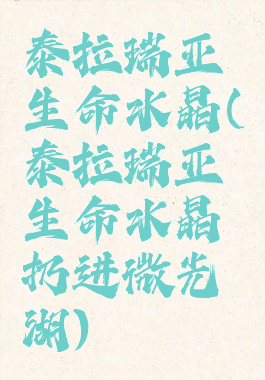 泰拉瑞亚
生命水晶(
泰拉瑞亚
生命水晶
扔进微光
湖)